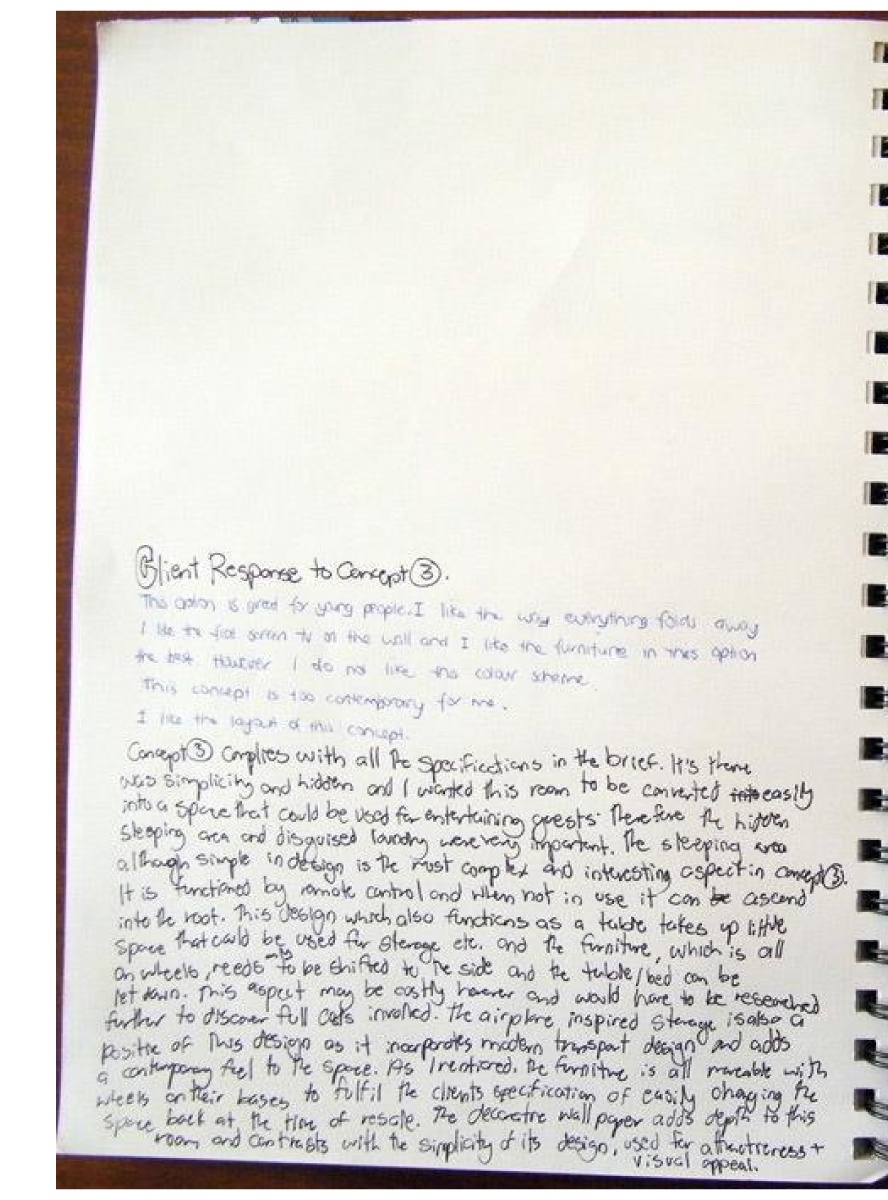 Client Response to Concept ③.
This option is great for young people. I like the way everything folds away
I like the flat screen tv on the wall and I like the furniture in this option
the best. However I do not like the colour scheme.
This concept is too contemporary for me.
I like the layout of this concept.
Concept ③ complies with all the specifications in the brief. It's theme
was simplicity and hidden and I wanted this room to be converted into easily
into a space that could be used for entertaining guests. Therefore the hidden
sleeping area and disguised laundry were very important. The sleeping area
although simple in design is the most complex and interesting aspect in concept ③.
It is functioned by remote control and when not in use it can be ascend
into the roof. This design which also functions as a table takes up little
space that could be used for storage etc. and the furniture, which is all
on wheels, needs only to be shifted to the side and the table/bed can be
let down. This aspect may be costly however and would have to be researched
further to discover full costs involved. The airplane inspired storage is also a
positive of this design as it incorporates modern transport design and adds
a contemporary feel to the space. As I mentioned, the furniture is all moveable with
wheels on their bases to fulfil the clients specification of easily changing the
space back at the time of resale. The decorative wall paper adds depth to this
room and contrasts with the simplicity of its design, used for attractiveness +
visual appeal.